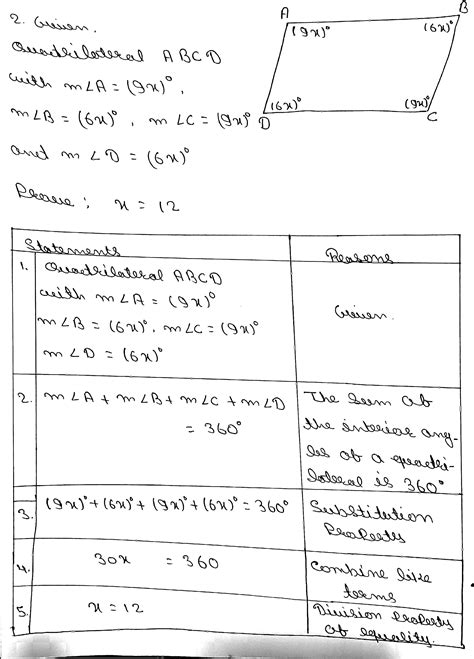 2. Given.
Quadrilateral ABCD
with m∠A = (9x)°,
m∠B = (6x)°, m∠C = (9x)°
and m∠D = (6x)°
Prove: x = 12
A
B
(9x)°
(6x)°
(6x)°
(9x)°
D
C
Statements
Reasons
1. Quadrilateral ABCD
with m∠A = (9x)°
m∠B = (6x)°. m∠C = (9x)°
m∠D = (6x)°
Given.
2. m∠A + m∠B + m∠C + m∠D
= 360°
The sum of
the interior ang-
les of a quadri-
lateral is 360°
3. (9x)° + (6x)° + (9x)° + (6x)° = 360°
Substitution
Property
4. 30x = 360
Combine like
terms
5. x = 12
Division property
of equality.